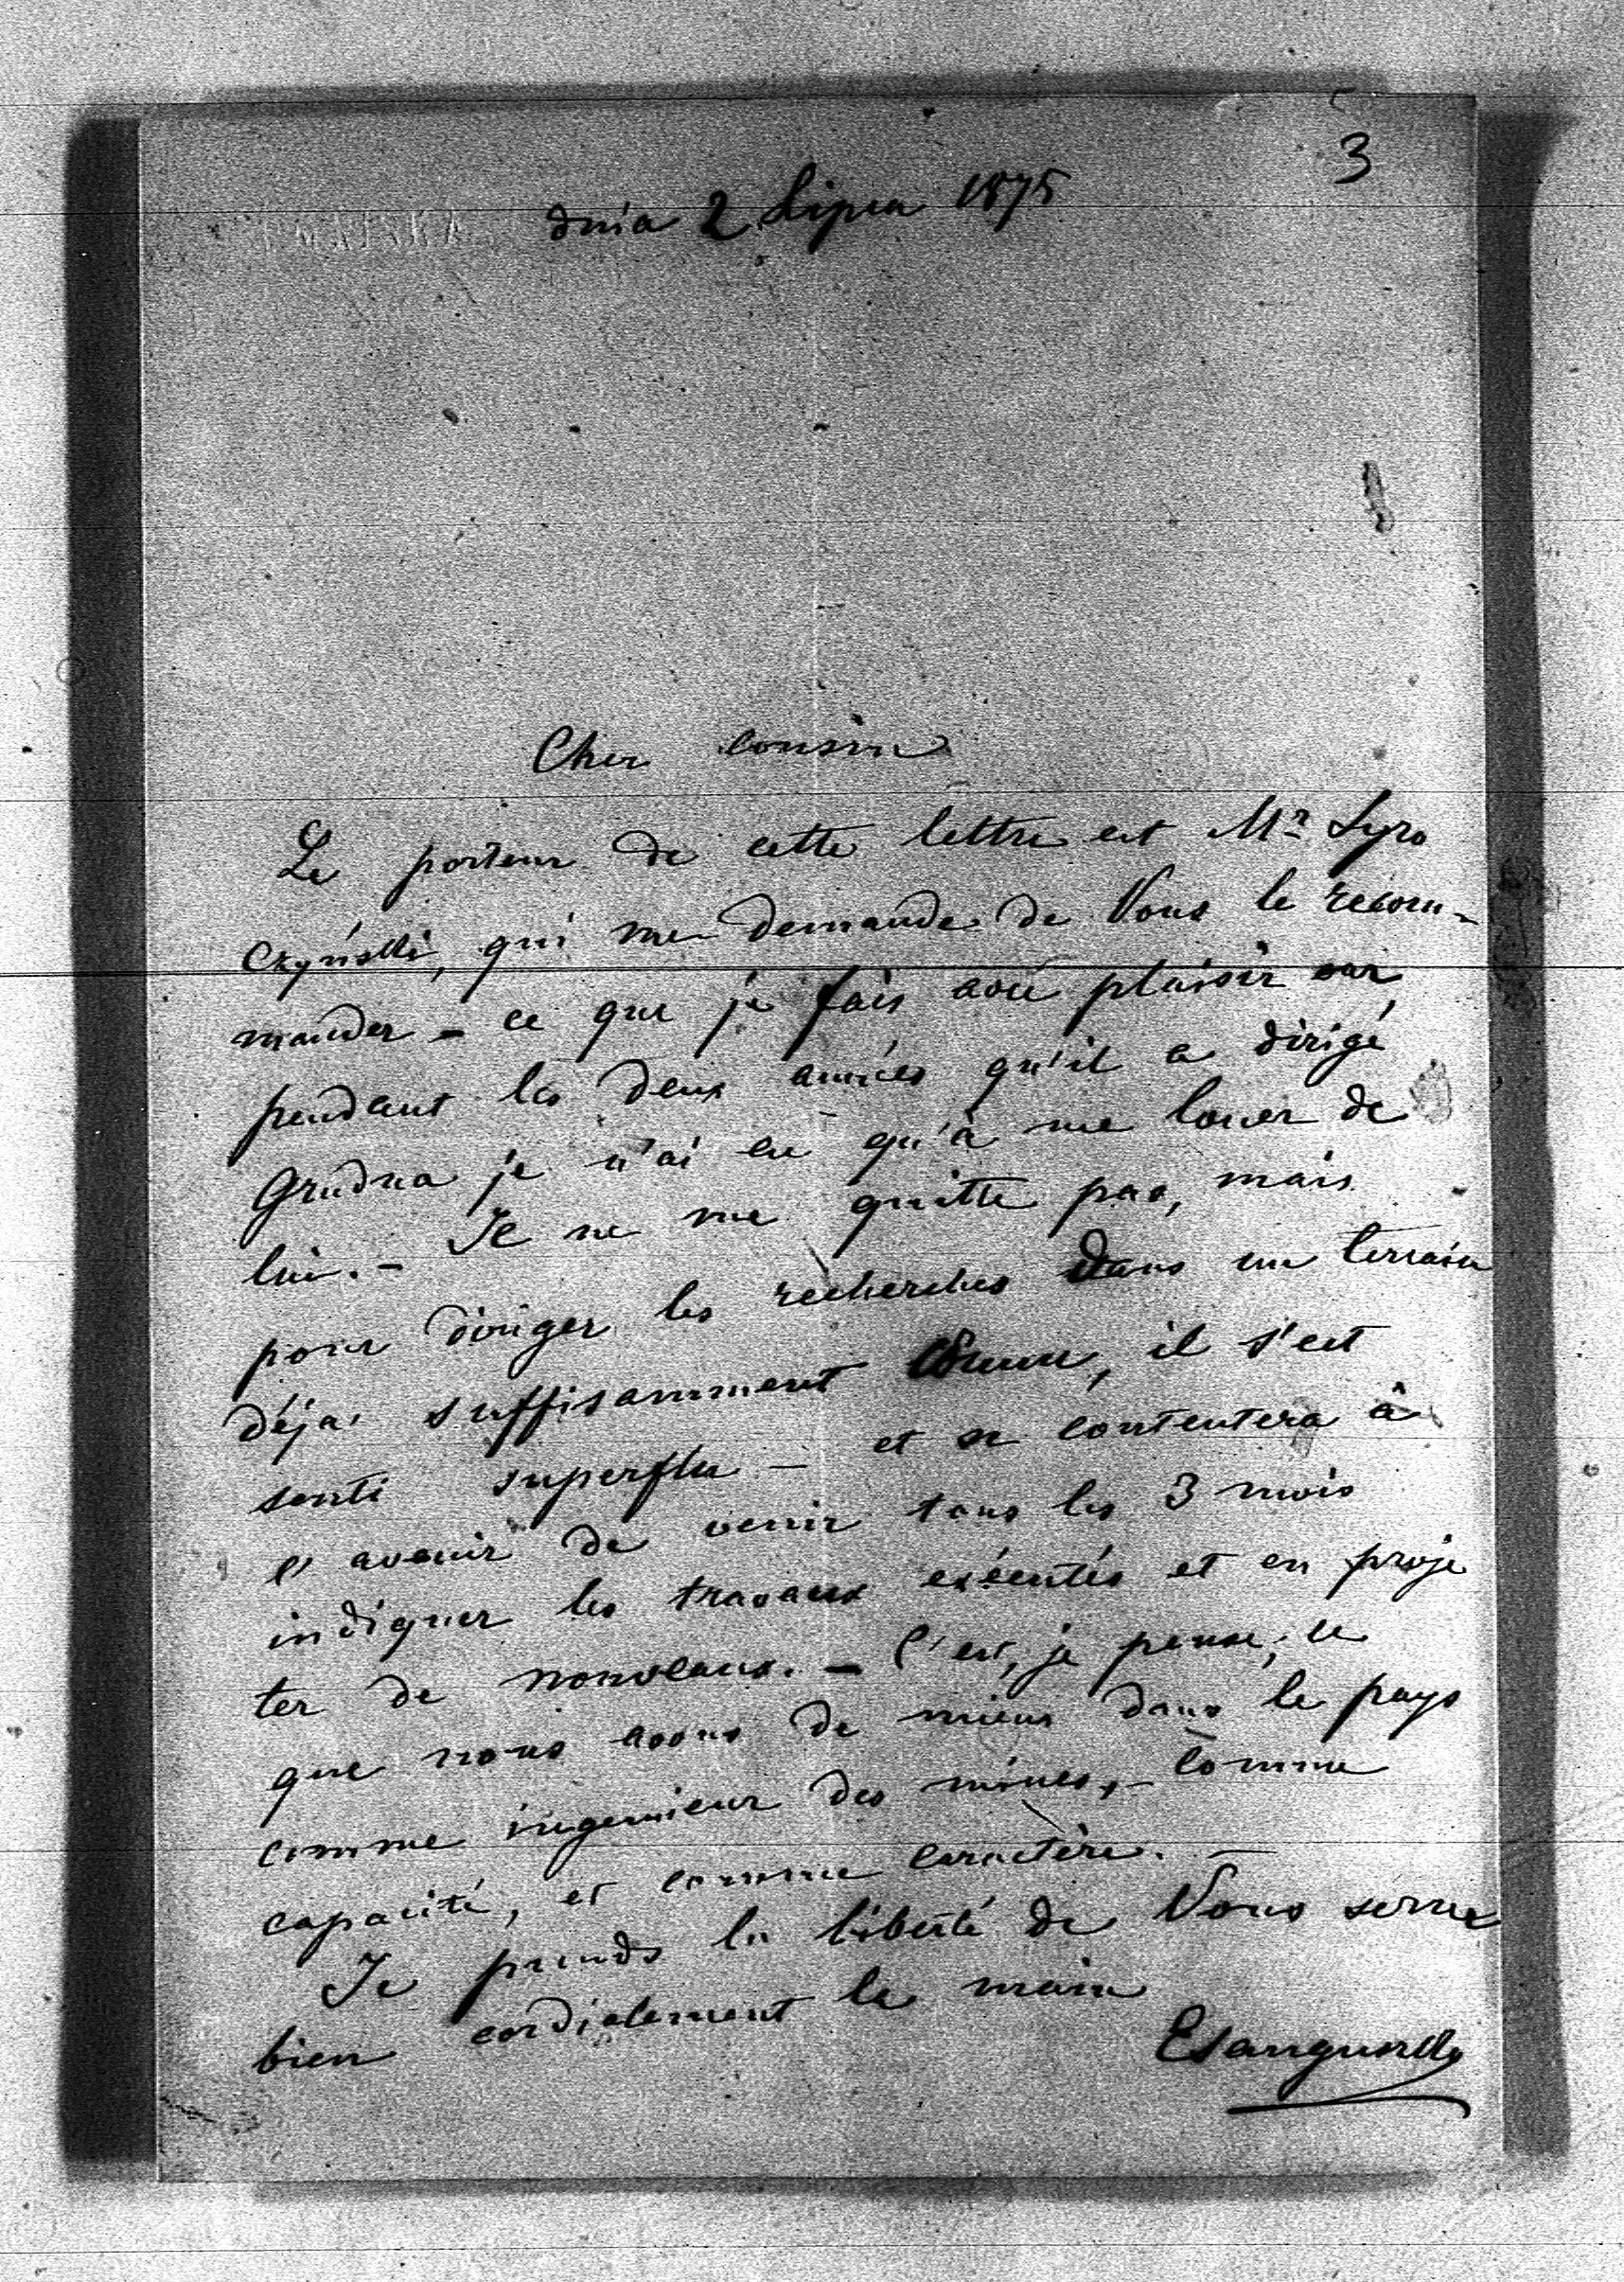 3
dnia 2 Lipca 1875
Cher cousin
Le porteur de cette lettre est Mr Syro
czyński, qui me demande de Vous le recom-
mander - ce que je fais avec plaisir car
pendant les deux années qu'il a dirigé
Grudna je n'ai eu qu'à me louer de
lui. - Il ne me quitte pas, mais
pour diriger les recherches dans un terrain
déjà suffisamment connu, il s'est
senti superflu - et se contentera à
l'avenir de venir tous les 3 mois
indiquer les travaux exécutés et en proje
ter de nouveaux. - C'est, je pense, ce
que nous avons de mieux dans le pays
comme ingenieur des mines, - comme
capacité, et comme caractère. -
Je prends la liberté de Vous serrer
bien cordialement la main